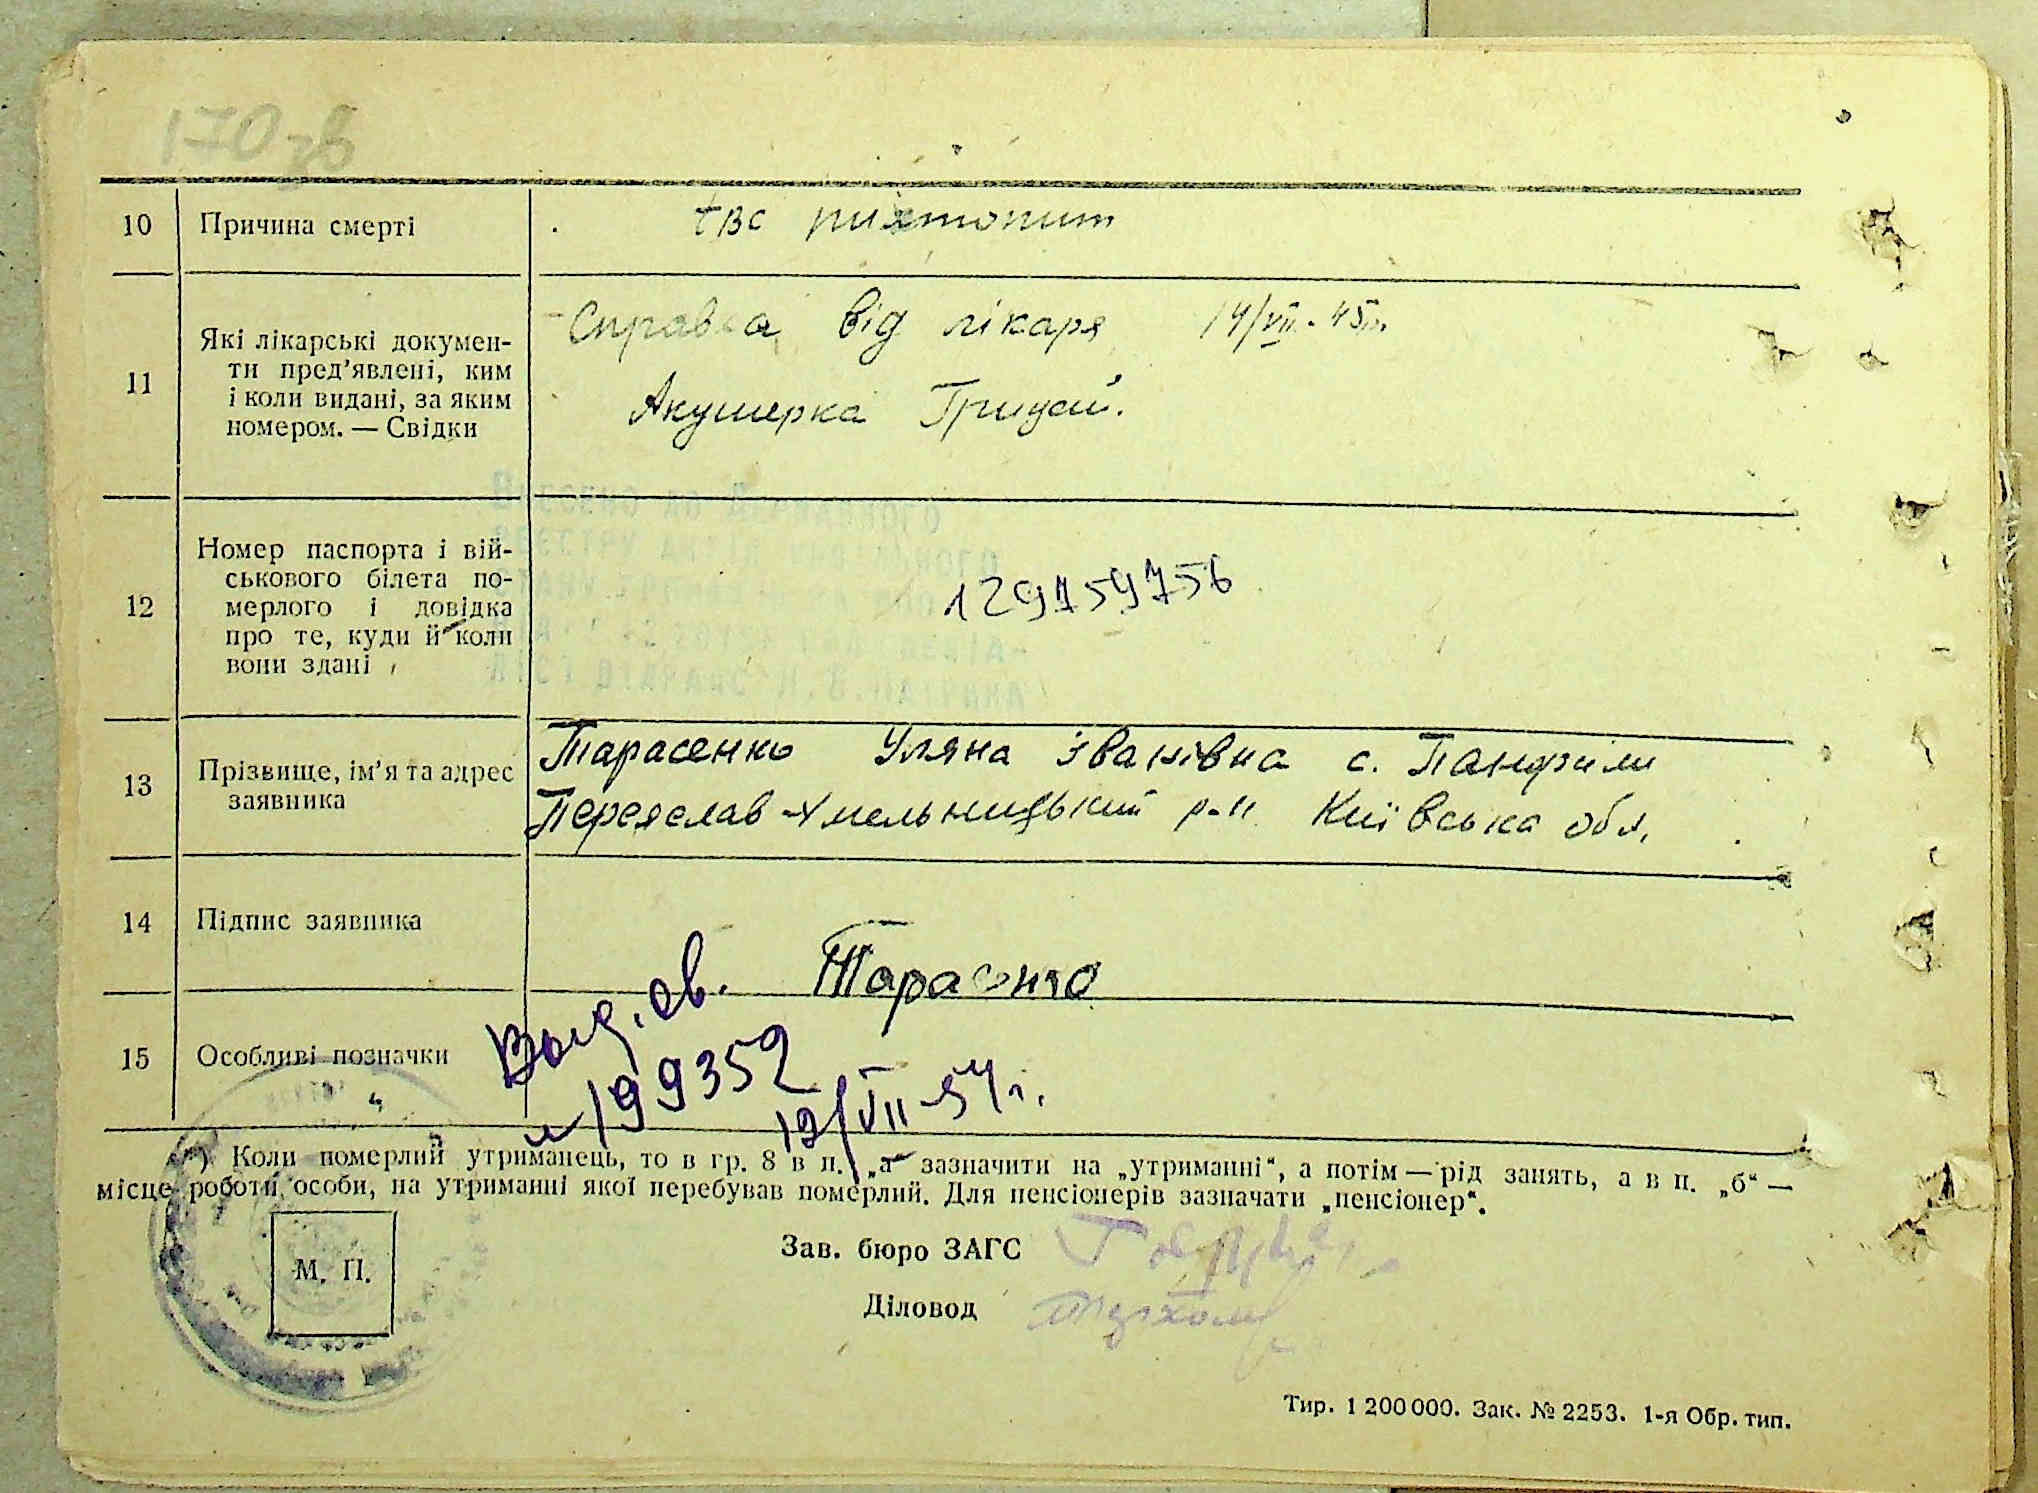 170 зв
10 Причина смерті
tвс
11 Які лікарські докумен-
ти пред’явлені, ким
і коли видані, за яким
номером. — Свідки
Справка від лікаря 14/VII - 45р.
Акушерка Грицай.
Внесено до Державного
12 Номер паспорта і вій-
ськового білета по-
мерлого і довідка
про те, куди й коли
вони здані
129759756
13 Прізвище, ім’я та адрес
заявника
Тарасенко Уляна Іванівна с. Панфили
Переяслав-Хмельницький р-н Київська обл.
14 Підпис заявника
15 Особливі позначки
Выд. св.
№ 199352
12/VII-54 г.
*) Коли померлий утриманець, то в гр. 8 в п. „а“ зазначити на „утриманні“, а потім — рід занять, а в п. „б“ —
місце роботи особи, на утриманні якої перебував померлий. Для пенсіонерів зазначати „пенсіонер“.
М. П.
Зав. бюро ЗАГС
Діловод
Тир. 1 200 000. Зак. № 2253. 1-я Обр. тип.